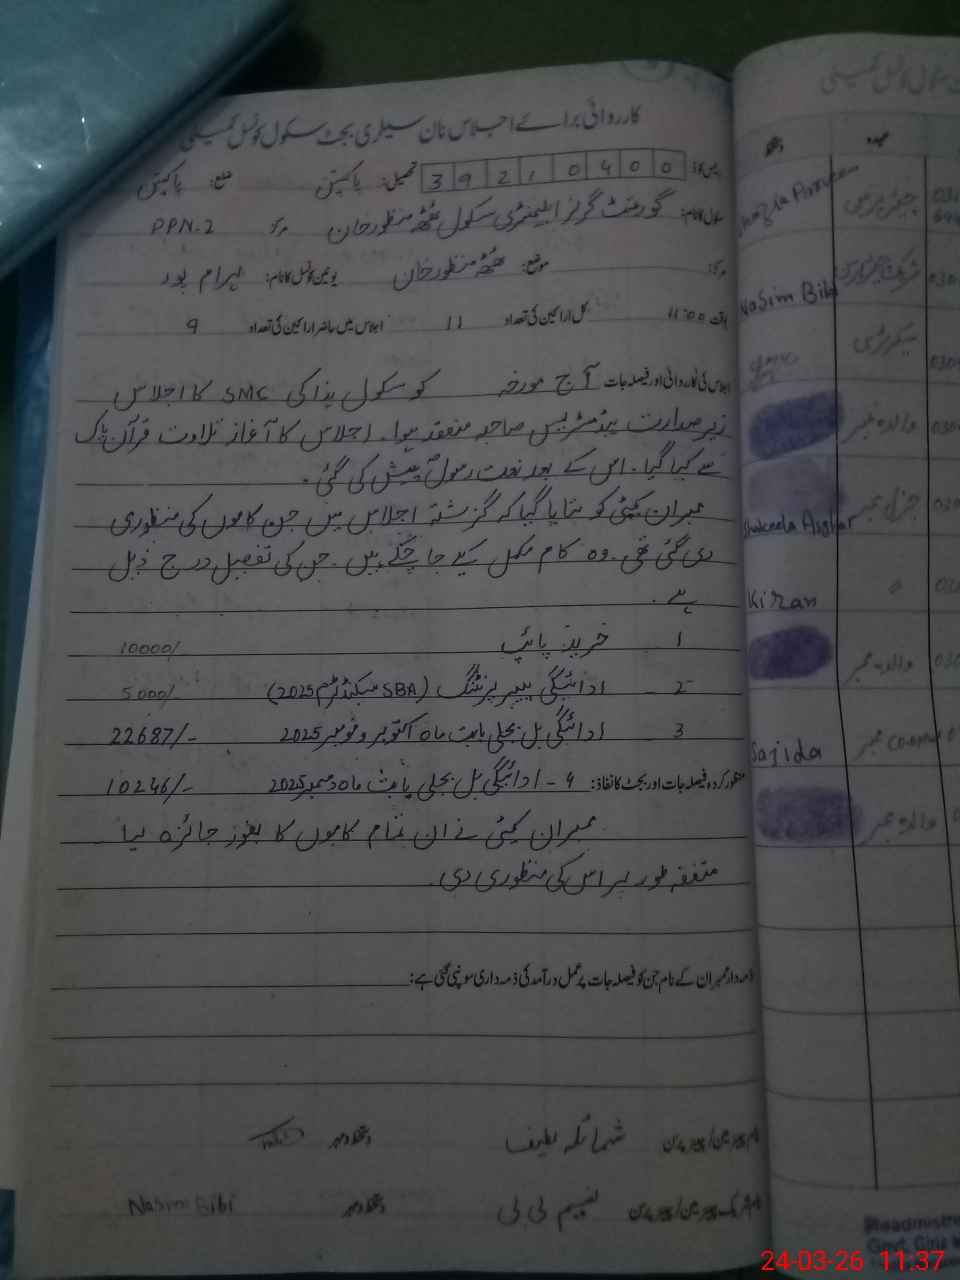 کارروائی برائے اجلاس نان سیلری بجٹ سکول کونسل کمیٹی
3 9 2 1 0 4 0 0 تحصیل: پاکپتن ضلع: پاکپتن
سکول کا نام: گورنمنٹ گرلز ایلیمنٹری سکول ٹھٹھہ منظور خان مرکز PPN-2
موضع: ٹھٹھہ منظور خان یونین کونسل کا نام: بہرام پور
وقت 11:00 کل اراکین کی تعداد 11 اجلاس میں حاضر اراکین کی تعداد 9
اجلاس کی کارروائی اور فیصلہ جات آج مورخہ کو سکول ہذا کی SMC کا اجلاس
زیر صدارت ہیڈمسٹریس صاحبہ منعقد ہوا۔ اجلاس کا آغاز تلاوت قرآن پاک
سے کیا گیا۔ اس کے بعد نعت رسولؐ پیش کی گئی۔
ممبران کمیٹی کو بتایا گیا کہ گزشتہ اجلاس میں جن کاموں کی منظوری
دی گئی تھی۔ وہ کام مکمل کیے جا چکے ہیں۔ جس کی تفصیل درج ذیل
ہے۔
1 خرید پائپ 10000/
2 ادائیگی پیپر پرنٹنگ (SBA سیکنڈ ٹرم 2025) 5000/
3 ادائیگی بل بجلی بابت ماہ اکتوبر و نومبر 2025 22687/-
منظور کردہ فیصلہ جات اور بجٹ کا نفاذ: 4 - ادائیگی بل بجلی بابت ماہ دسمبر 2025 10246/-
ممبران کمیٹی نے ان تمام کاموں کا بغور جائزہ لیا
متفقہ طور پر اس کی منظوری دی۔
ذمہ دار ممبران کے نام جن کو فیصلہ جات پر عمل درآمد کی ذمہ داری سونپی گئی ہے:
نام چیئرمین/چیئرپرسن شمائلہ لطیف دستخط و مہر
نام شریک چیئرمین/چیئرپرسن نسیم بی بی دستخط و مہر Nasim Bibi
عہدہ دستخط
چیئرپرسن
Nasim Bibi
سیکرٹری
والدہ ممبر
جنرل ممبر Shakeela Asghar
Kiran
والدہ ممبر
ممبر Sajida
والدہ ممبر
Headmistress
Govt. Girls
24-03-26 11:37